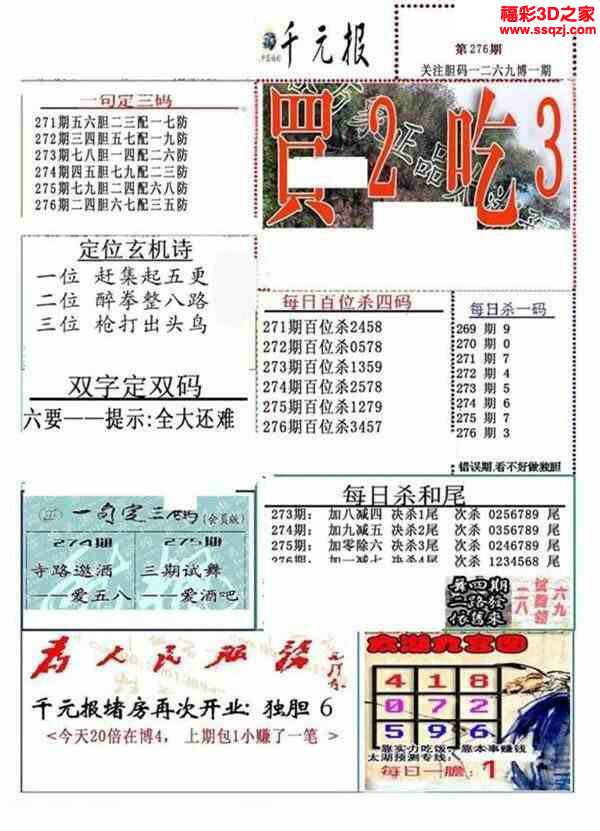 福彩3D之家
www.ssqzj.com
千元报
第276期
关注胆码一二六九博一期
一句定三码
271期五六胆二三配一七防
272期三四胆五七配一九防
273期七八胆一四配二六防
274期四五胆七九配二三防
275期七九胆二四配六八防
276期二四胆六七配三五防
買2吃3
定位玄机诗
一位 赶集起五更
二位 醉拳整八路
三位 枪打出头鸟
双字定双码
六要——提示:全大还难
每日百位杀四码
271期百位杀2458
272期百位杀0578
273期百位杀1359
274期百位杀2578
275期百位杀1279
276期百位杀3457
每日杀一码
269 期 9
270 期 0
271 期 7
272 期 4
273 期 5
274 期 6
275 期 7
276 期 3
错误期,看不好做独胆
一句定三码(会员版)
274期 275期
寺路邀酒 三期试舞
——爱五八 ——爱酒吧
每日杀和尾
273期: 加八减四 决杀1尾 次杀 0256789 尾
274期: 加九减五 决杀2尾 次杀 0356789 尾
275期: 加零除六 决杀3尾 次杀 0246789 尾
276期: 加一减七 决杀4尾 次杀 1234568 尾
二八
六九
为人民服务
千元报堵房再次开业: 独胆 6
<今天20倍在博4, 上期包1小赚了一笔>
太湖九宫图
4 1 8
0 7 2
5 9 6
靠实力吃饭, 靠本事赚钱
太湖预测专线:
每日一胆: 1